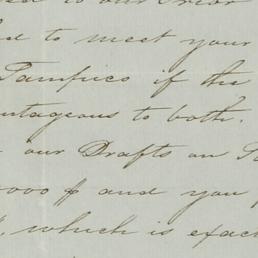 to our Prior
to meet your
Tampico if the
tageous to both.
our Drafts on
000 $ and you
, which is exac